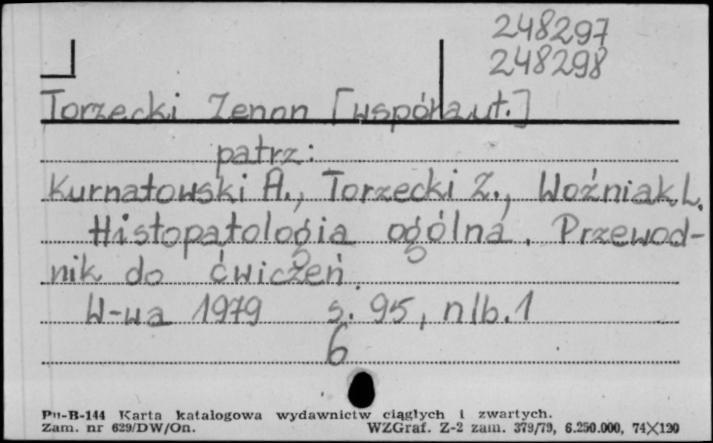 248297
248298
Torzecki Zenon [współaut.]
patrz:
Kurnatowski A., Torzecki Z., Woźniak L.
Histopatologia ogólna. Przewod-
nik do ćwiczeń.
W-wa 1979 s. 95, nlb. 1
6
Pu-B-144 Karta katalogowa wydawnictw ciągłych i zwartych.
Zam. nr 629/DW/On. WZGraf. Z-2 zam. 379/79, 6.250.000, 74×120